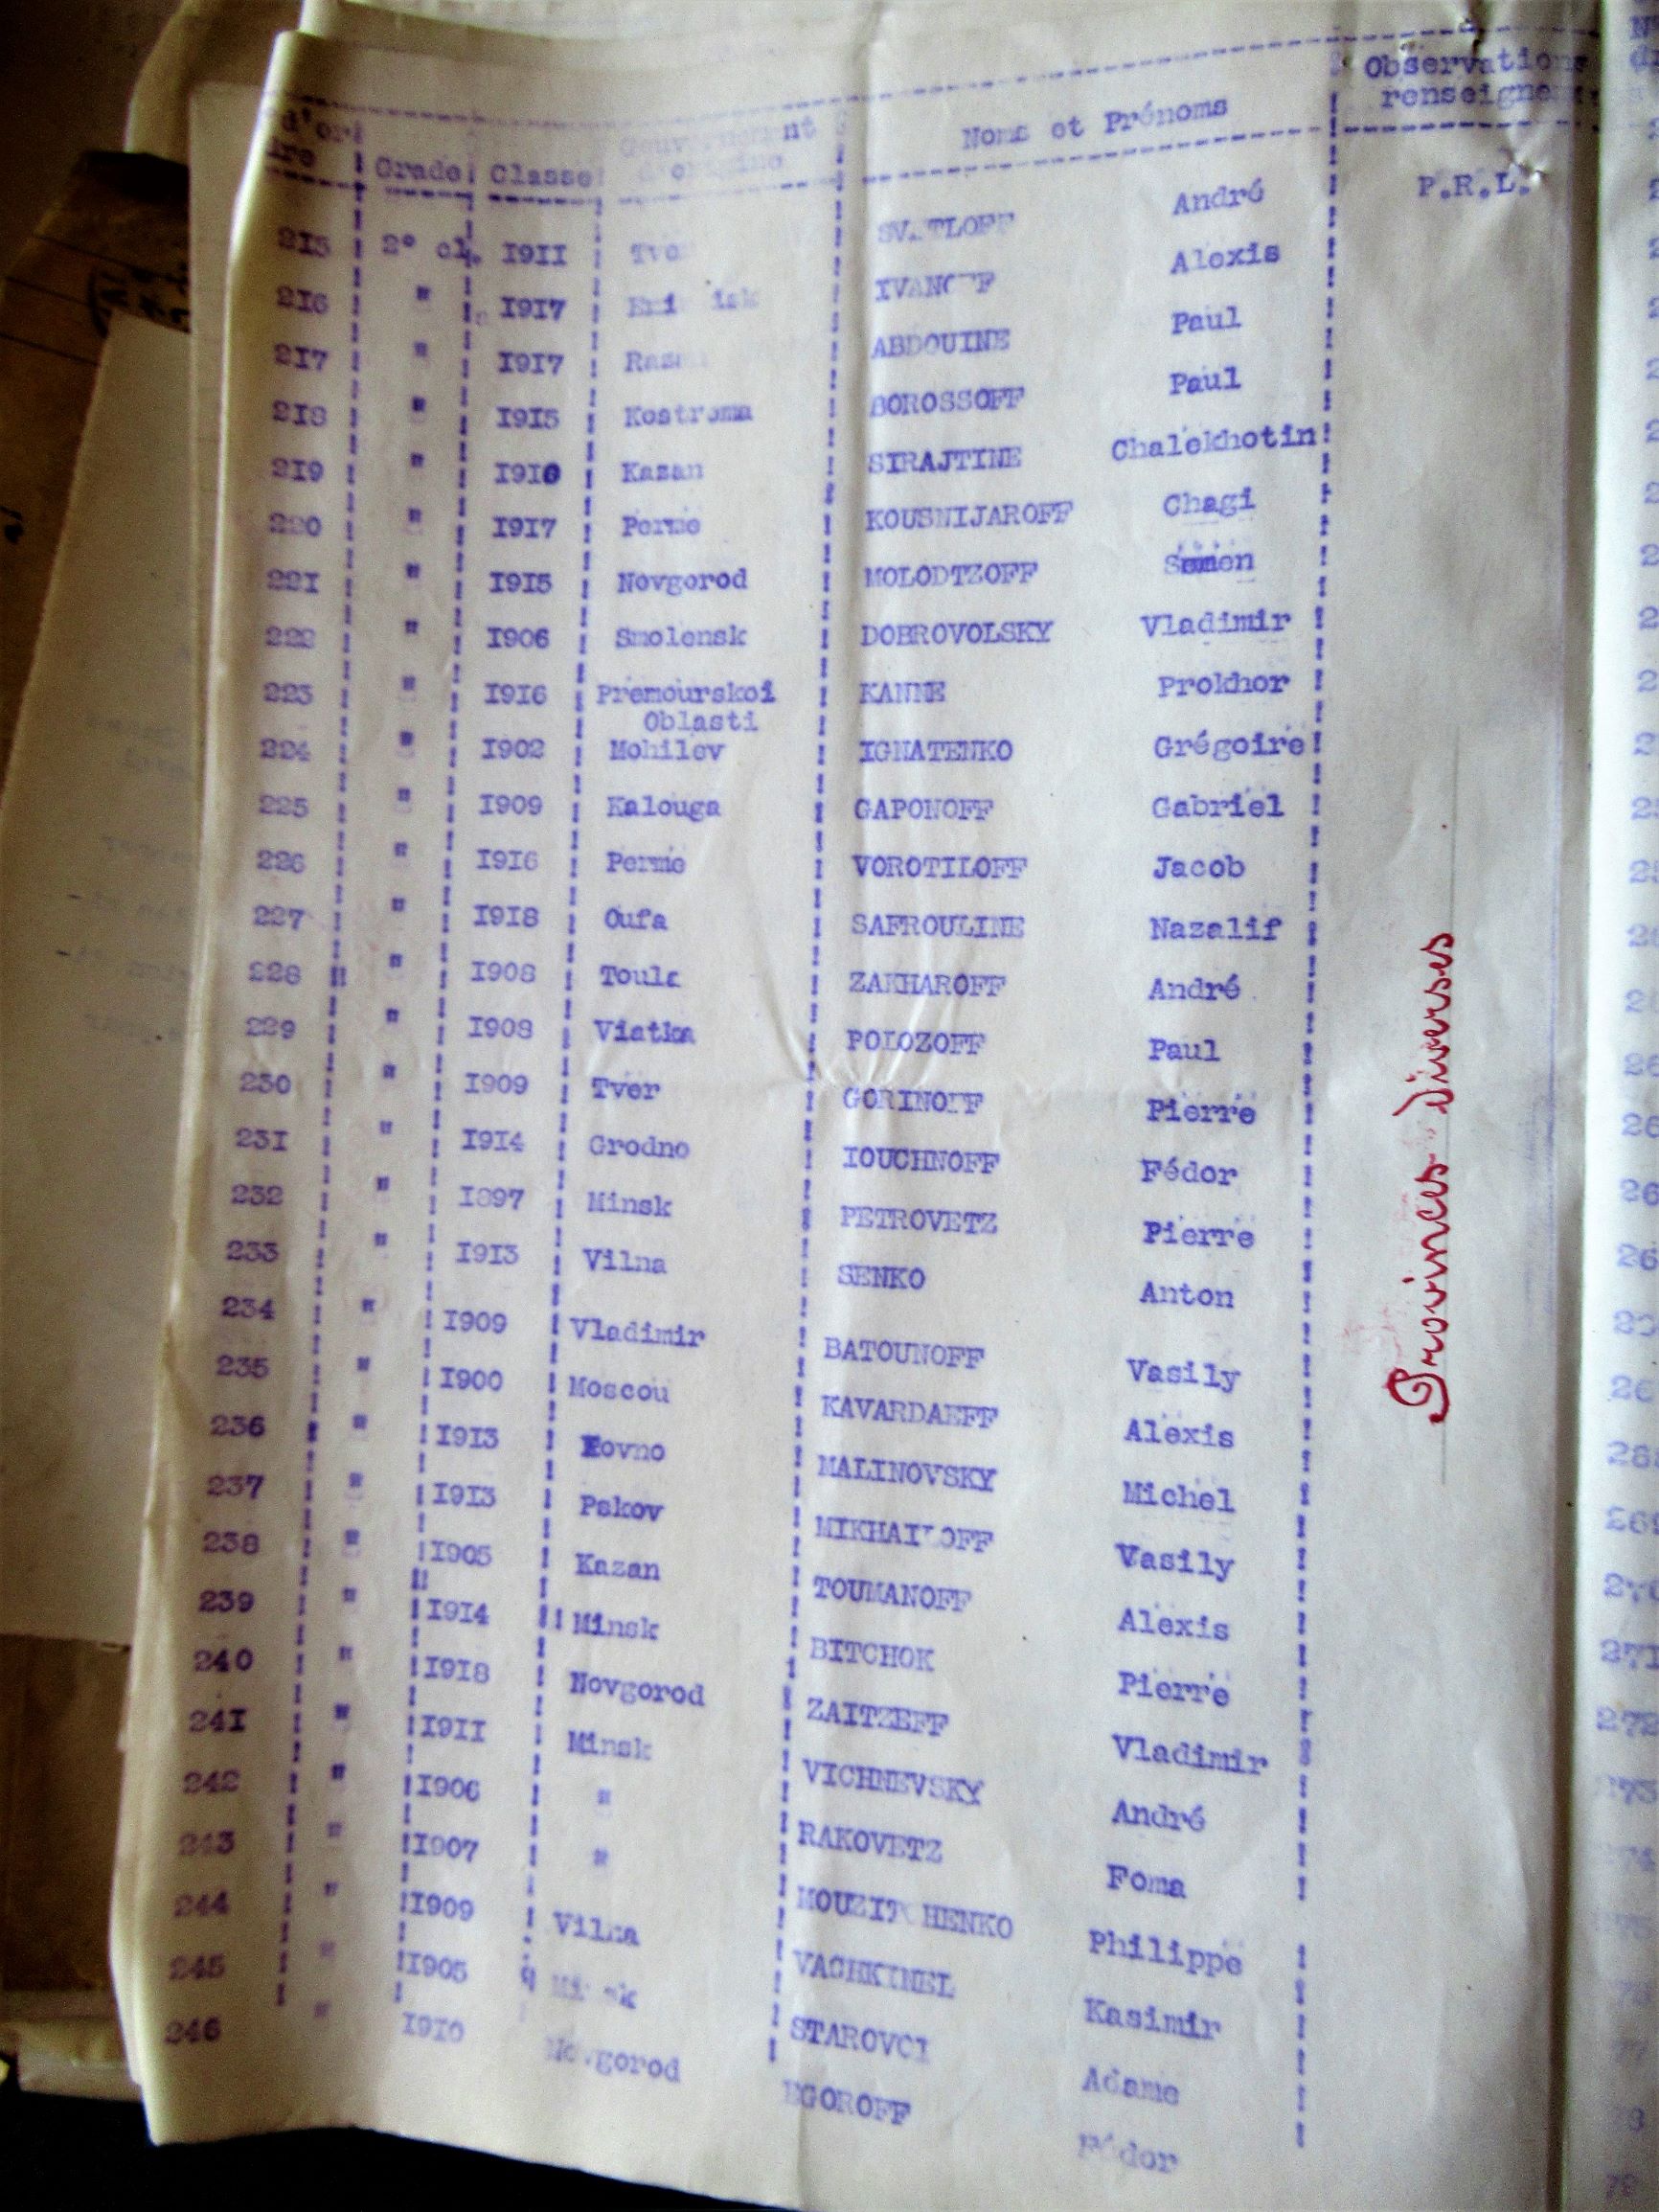 d'or Grade Classe Gouvernement d'origine Noms et Prénoms Observations
renseigne
215 2° cl. I9II SV.TLOFF André P.R.L.
216 " I917 IVANOFF Alexis
217 " I917 ABDOUINE Paul
218 " I915 Kostroma BOROSSOFF Paul
219 " I910 Kazan SIRAJTINE Chalekhotin
220 " I917 Perme KOUSNIJAROFF Chagi
22I " I915 Novgorod MOLODTZOFF Semen
222 " I906 Smolensk DOBROVOLSKY Vladimir
223 " I916 Premourskoi KANNE Prokhor
Oblasti
224 " I902 Mohilev IGNATENKO Grégoire
225 " I909 Kalouga GAPONOFF Gabriel
226 " I916 Perme VOROTILOFF Jacob
227 " I918 Oufa SAFROULINE Nazalif
228 " I908 Toula ZAKHAROFF André
229 " I908 Viatka POLOZOFF Paul
230 " I909 Tver GORINOFF Pierre
23I " I914 Grodno IOUCHNOFF Fédor
232 " I897 Minsk PETROVETZ Pierre
233 " I913 Vilna SENKO Anton
234 " I909 Vladimir BATOUNOFF Vasily
235 " I900 Moscou KAVARDAEFF Alexis
236 " I913 Kovno MALINOVSKY Michel
237 " I913 Pskov MIKHAILOFF Vasily
238 " I905 Kazan TOUMANOFF Alexis
239 " I914 Minsk BITCHOK Pierre
240 " I918 Novgorod ZAITZEFF Vladimir
24I " I9II Minsk VICHNEVSKY André
242 " I906 " RAKOVETZ Foma
243 " I907 " MOUZITCHENKO Philippe
244 " I909 Vilna VACHKINEL Kasimir
245 " I905 Minsk STAROVOI Adame
246 " I9I0 Novgorod EGOROFF Fédor
Provinces diverses